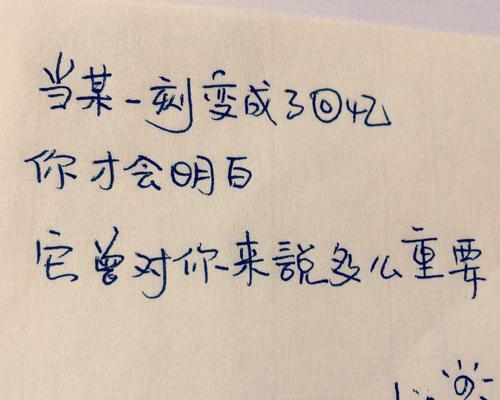 当某一刻变成了回忆
你才会明白
它曾对你来說多么重要